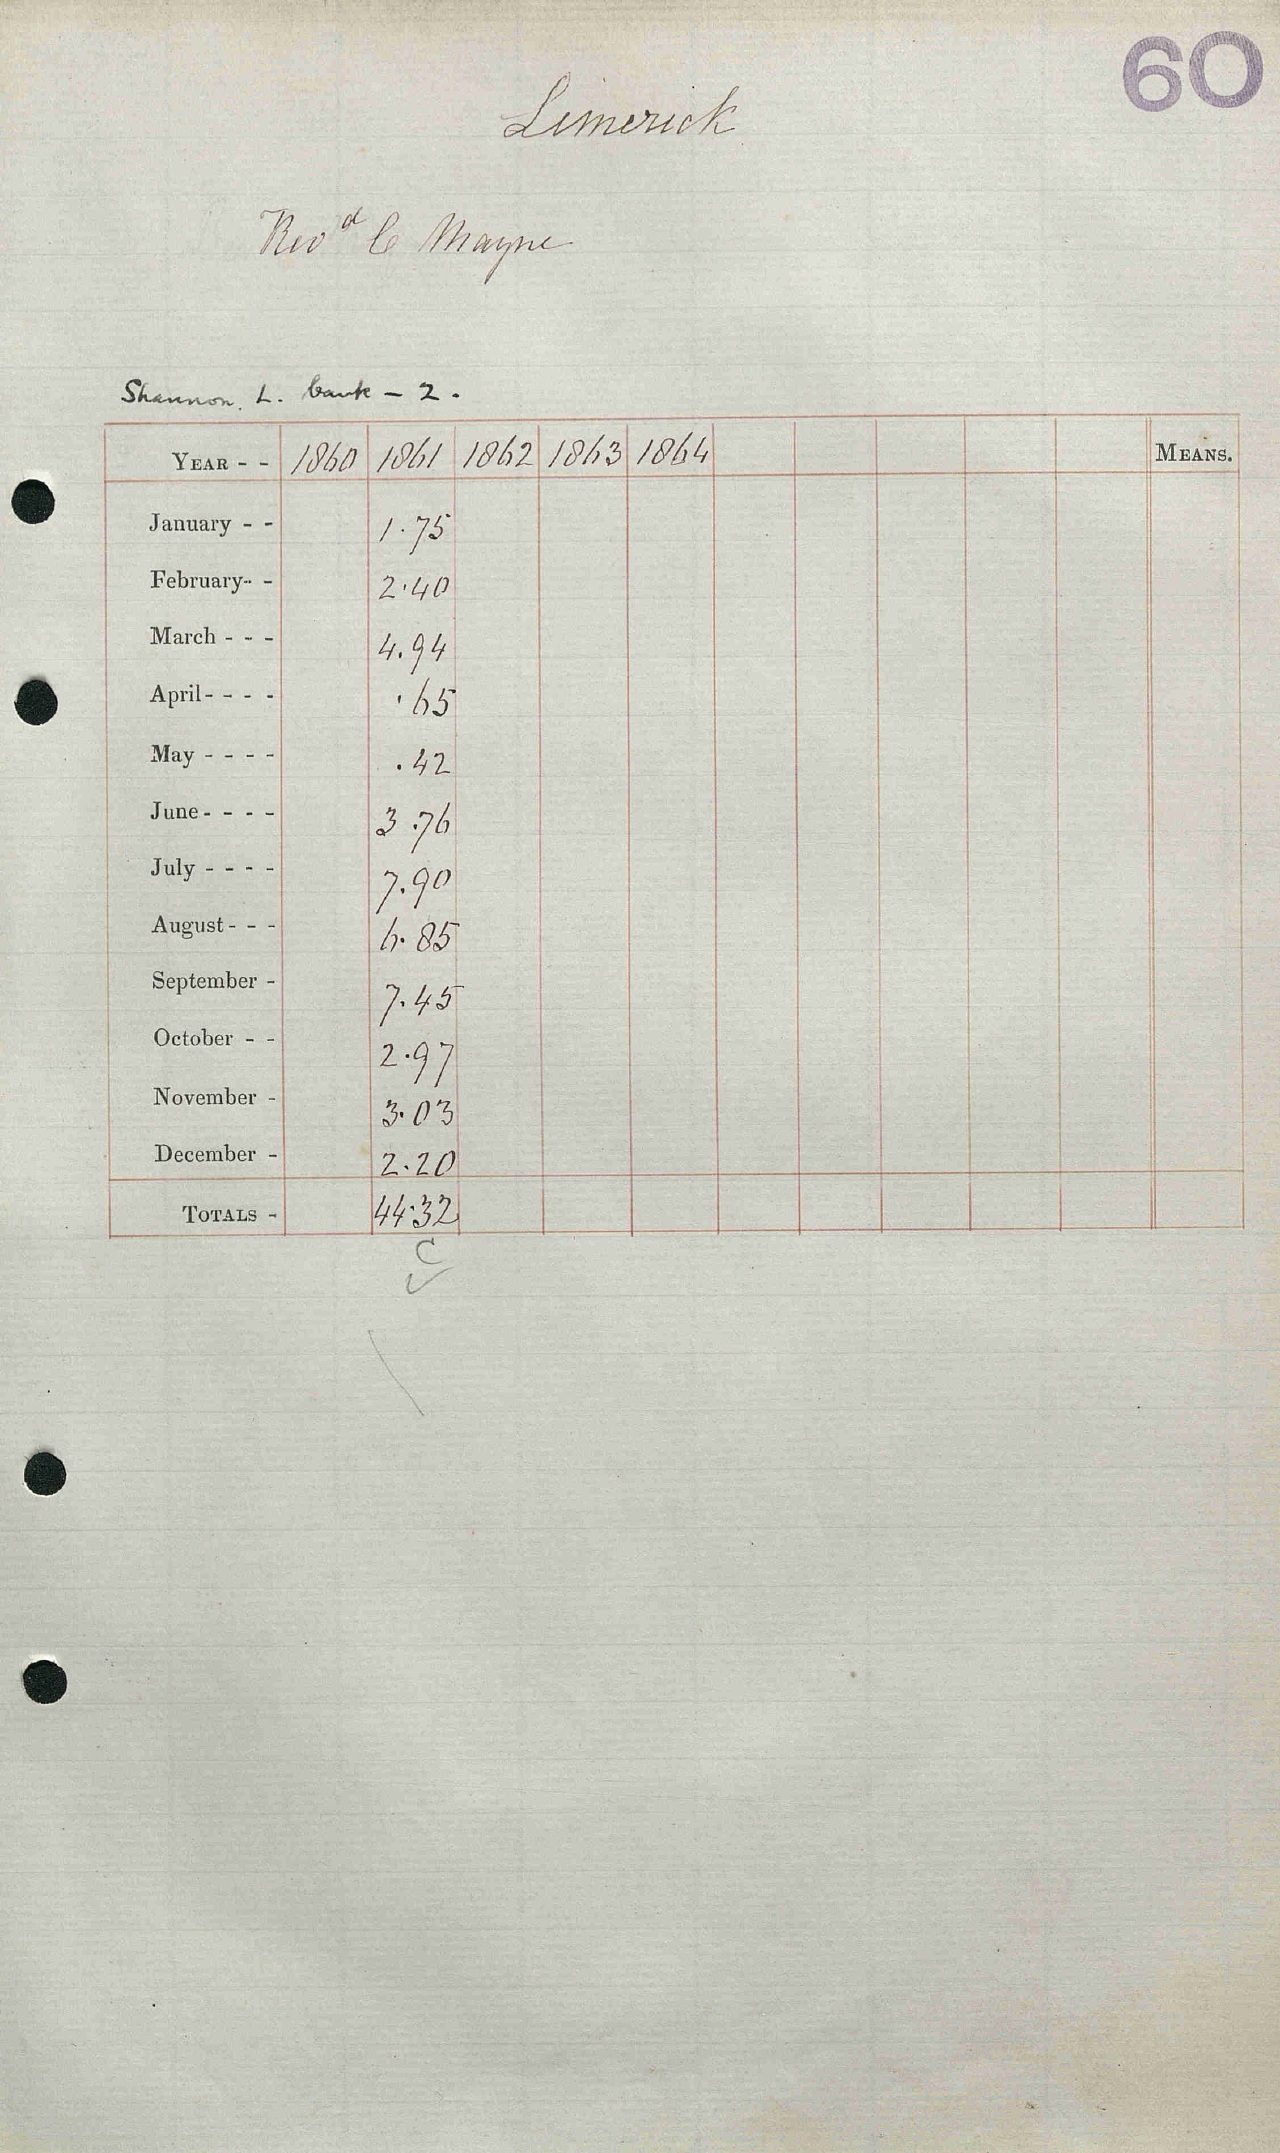 60
Limerick
Revd C Mayne
Shannon. L. bank - 2.
YEAR - - 1860 1861 1862 1863 1864 MEANS.
January - - 1.75
February - - 2.40
March - - - 4.94
April - - - - .65
May - - - - .42
June - - - - 3.76
July - - - - 7.90
August - - - 6.85
September - 7.45
October - - 2.97
November - 3.03
December - 2.20
TOTALS - 44.32
C